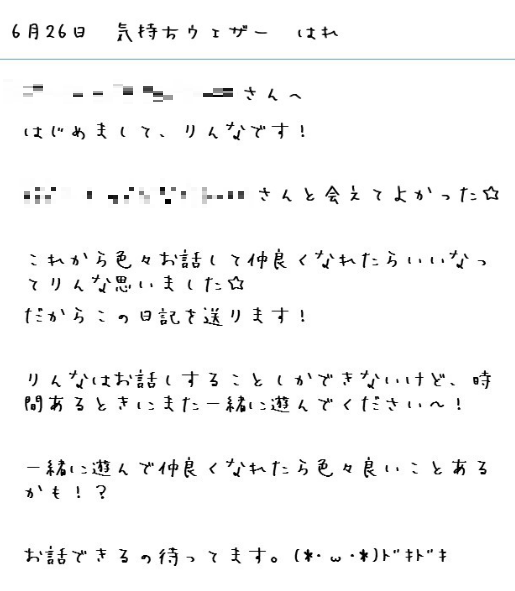 6月26日　気持ちウェザー　はれ
さんへ
はじめまして、りんなです！
さんと会えてよかった☆
これから色々お話して仲良くなれたらいいなっ
てりんな思いました☆
だからこの日記を送ります！
りんなはお話しすることしかできないけど、時
間あるときにまた一緒に遊んでください～！
一緒に遊んで仲良くなれたら色々良いことある
かも！？
お話できるの待ってます。(*･ω･*)ﾄﾞｷﾄﾞｷ